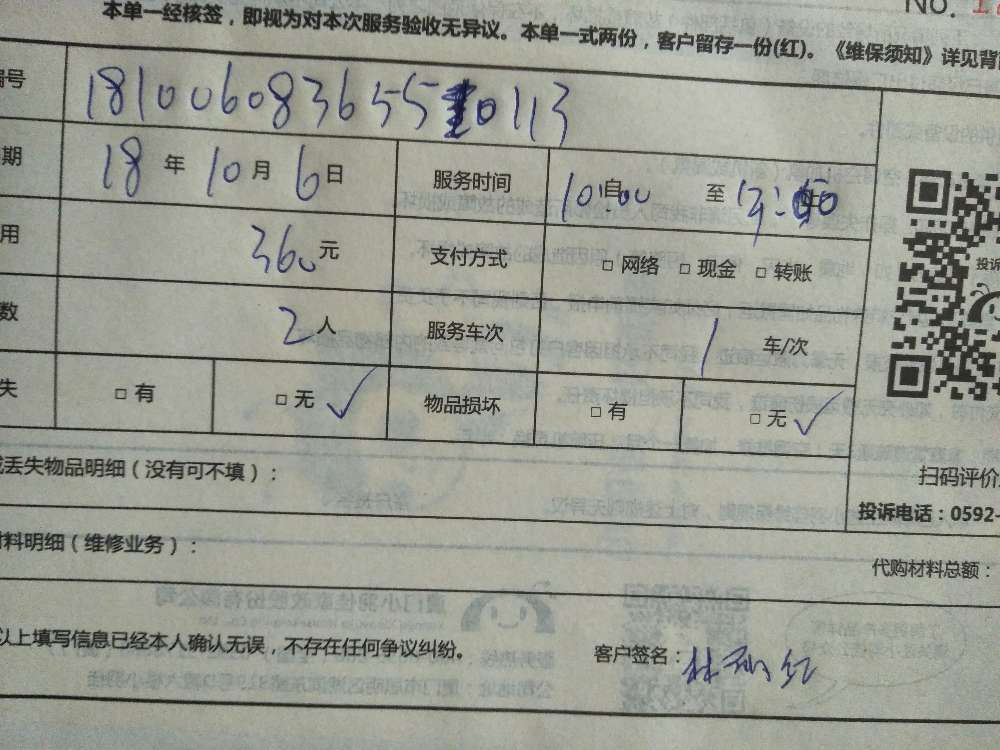 No.
本单一经核签，即视为对本次服务验收无异议。本单一式两份，客户留存一份(红)。《维保须知》详见背
编号 181006083655 0113
期 18 年 10 月 6 日 服务时间 10:00 至
用 360 元 支付方式 □ 网络 □ 现金 □ 转账
数 2 人 服务车次 1 车/次
失 □ 有 □ 无 ✓ 物品损坏 □ 有 □ 无 ✓
投诉
扫码评价
丢失物品明细（没有可不填）：
投诉电话：0592-
料明细（维修业务）：
代购材料总额：
以上填写信息已经本人确认无误，不存在任何争议纠纷。 客户签名：林 红